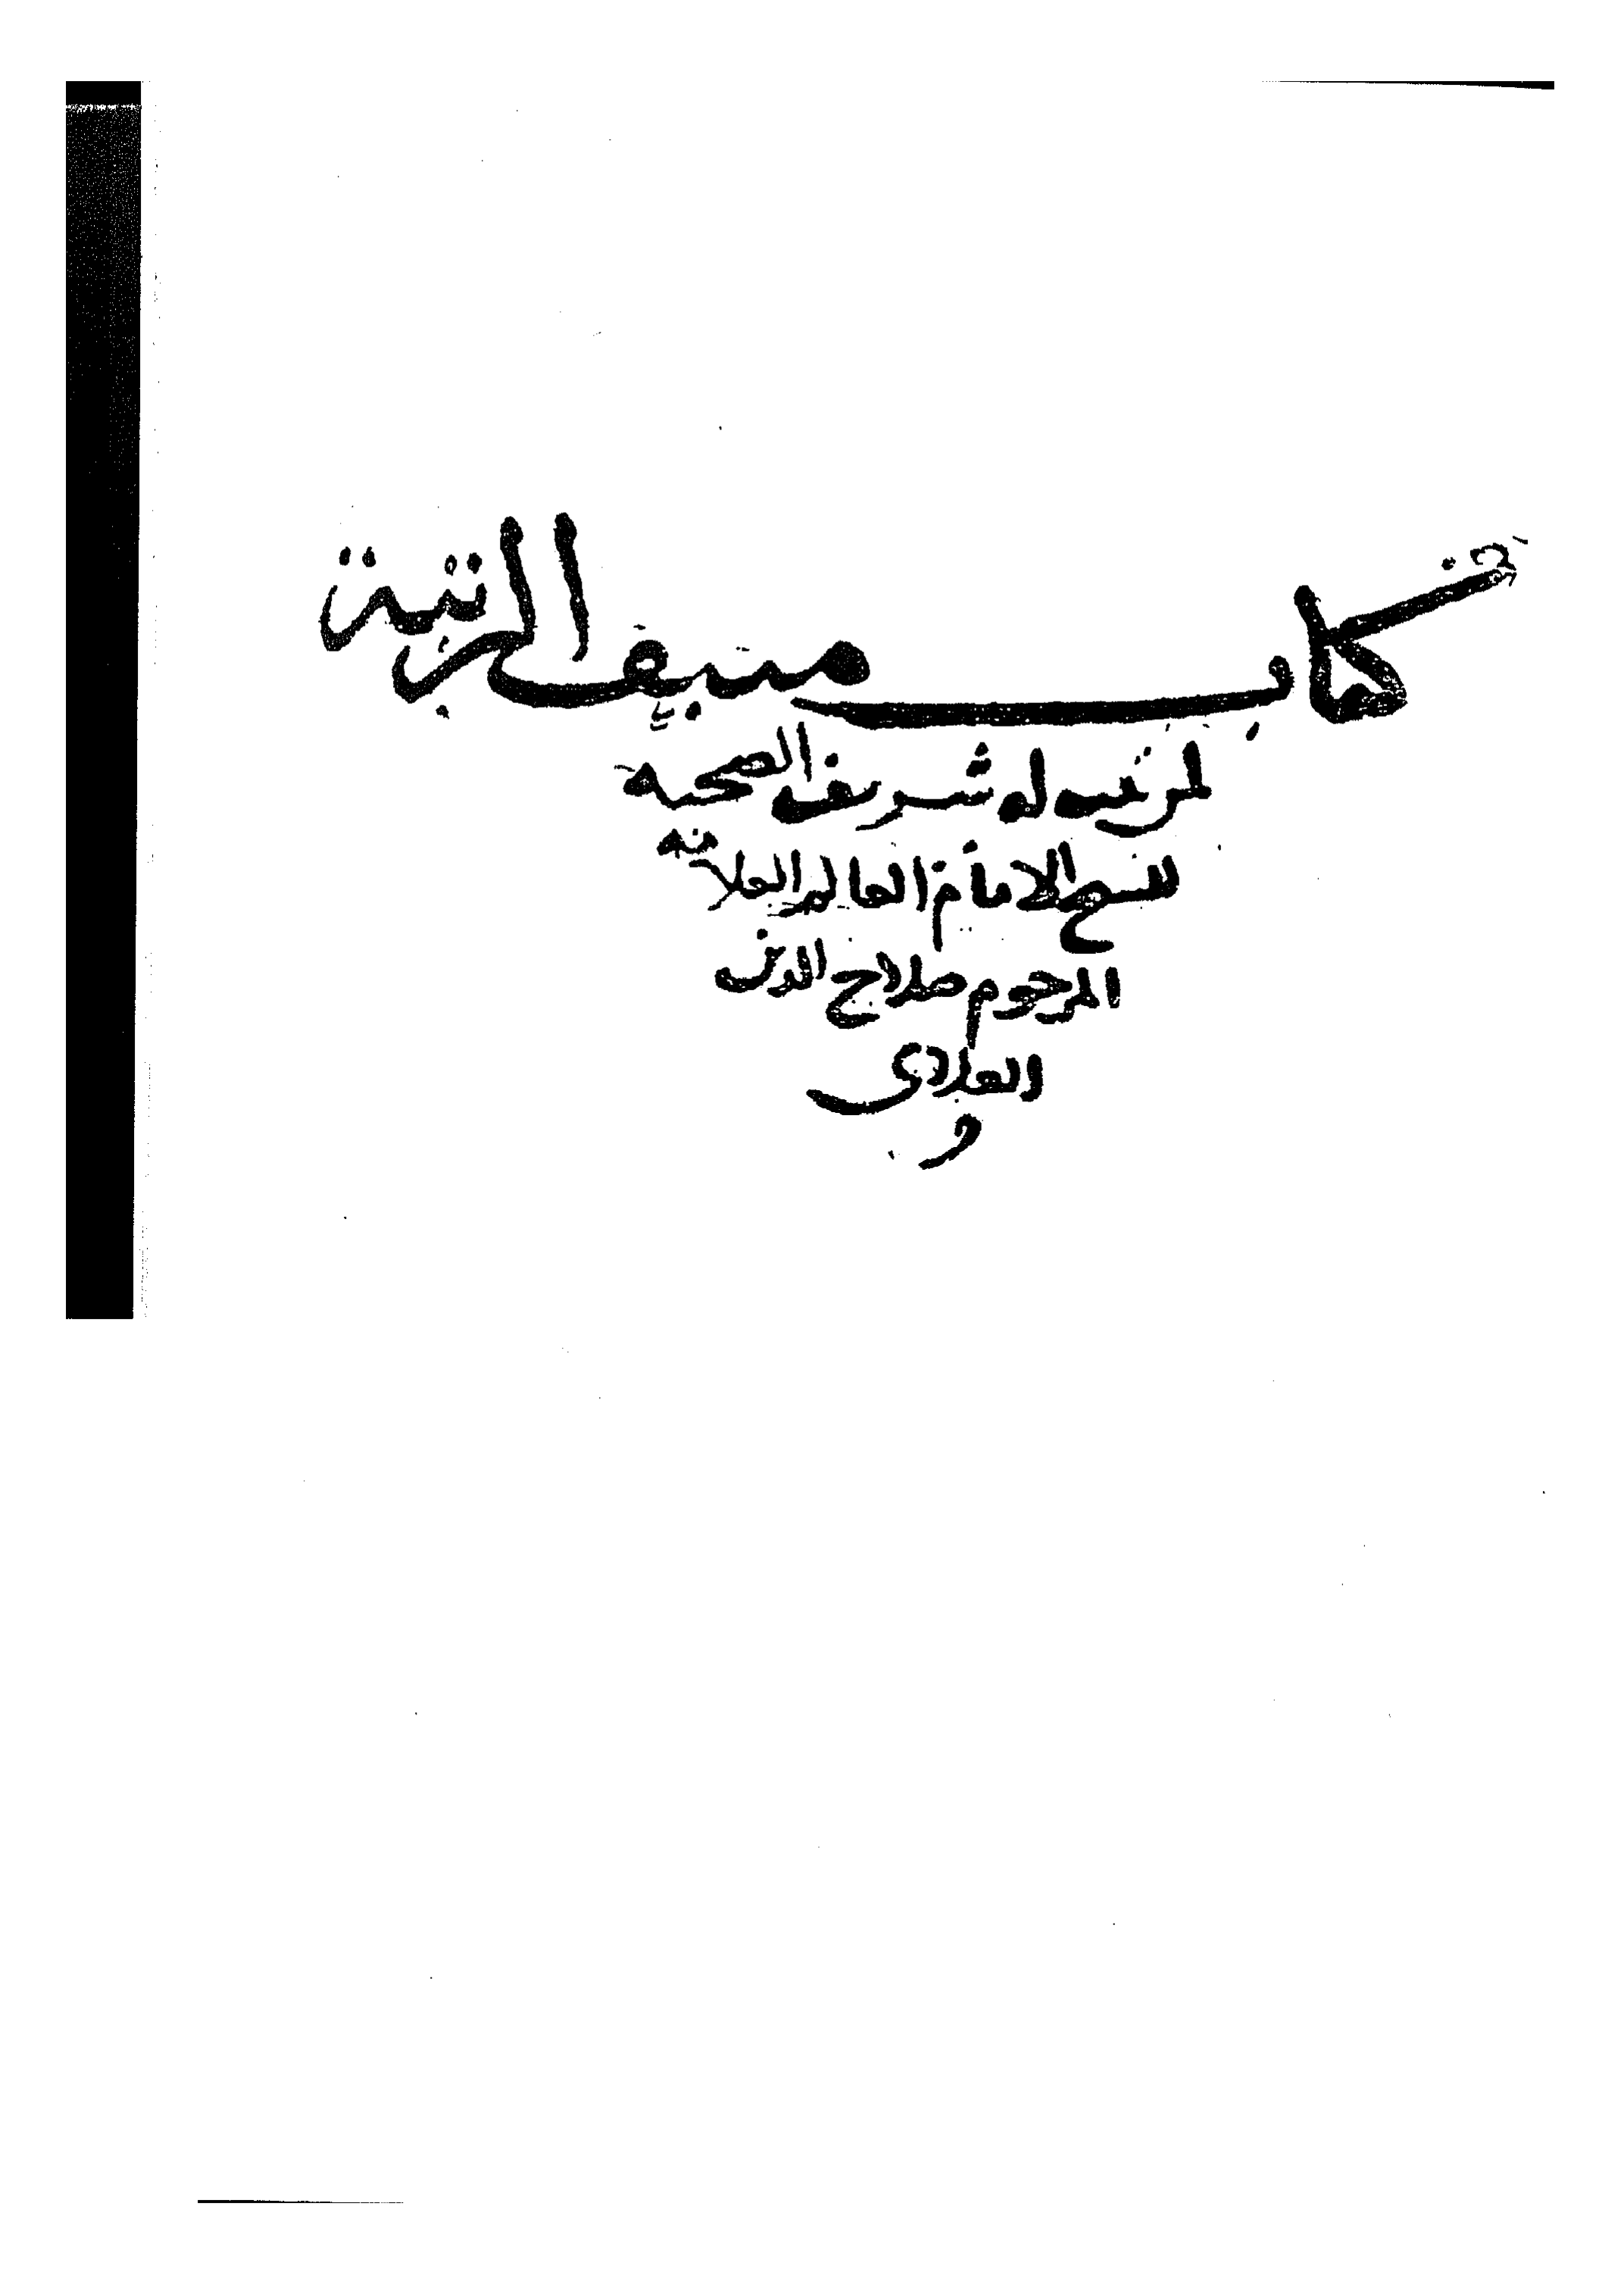 كتاب منيف الرتبة
لمن ثبت له شريف الصحبة
للشيخ الامام العالم العلامة
المرحوم صلاح الدين
العلائى